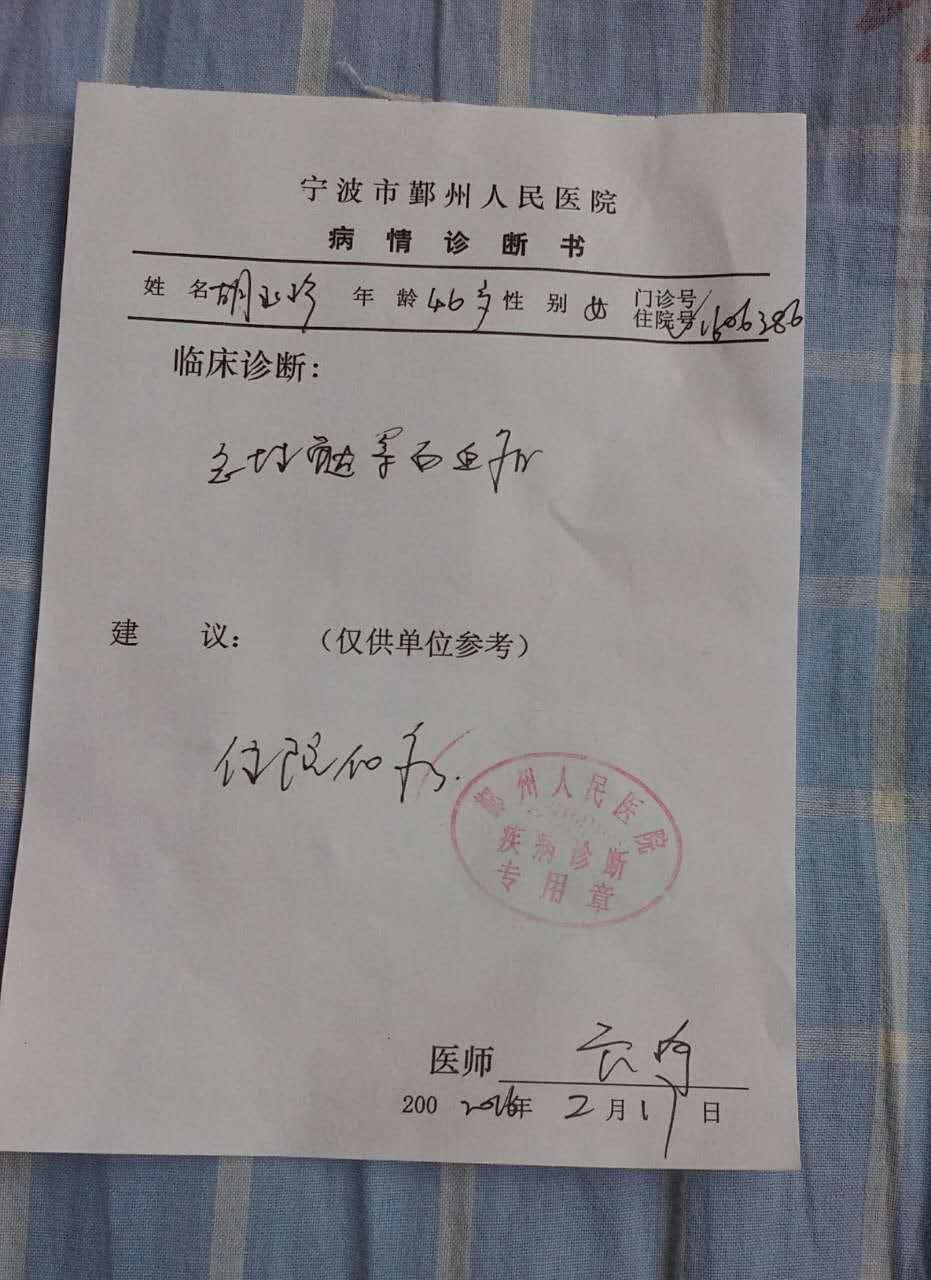 宁波市鄞州人民医院
病情诊断书
姓 名 胡 年 龄 46岁 性 别 女 门诊号/住院号 1606386
临床诊断:
白血病
建 议: （仅供单位参考）
住院治疗.
鄞州人民医院
疾病诊断
专用章
医师
200 2016年 2月17日